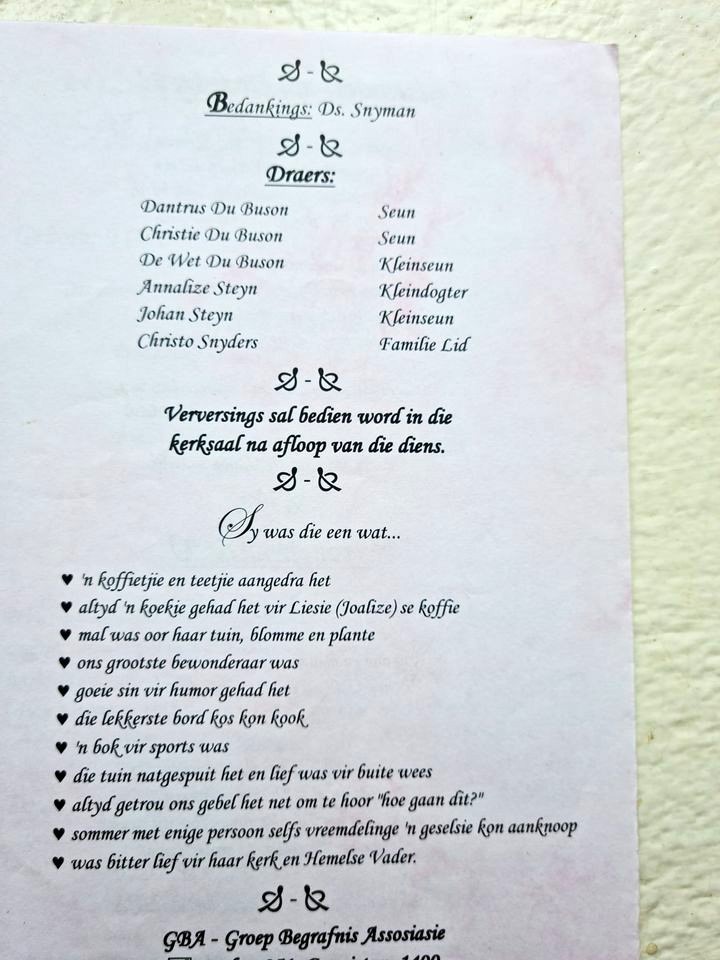 Bedankings: Ds. Snyman
Draers:
Dantrus Du Buson Seun
Christie Du Buson Seun
De Wet Du Buson Kleinseun
Annalize Steyn Kleindogter
Johan Steyn Kleinseun
Christo Snyders Familie Lid
Verversings sal bedien word in die
kerksaal na afloop van die diens.
Sy was die een wat...
♥ 'n koffietjie en teetjie aangedra het
♥ altyd 'n koekie gehad het vir Liesie (Joalize) se koffie
♥ mal was oor haar tuin, blomme en plante
♥ ons grootste bewonderaar was
♥ goeie sin vir humor gehad het
♥ die lekkerste bord kos kon kook
♥ 'n bok vir sports was
♥ die tuin natgespuit het en lief was vir buite wees
♥ altyd getrou ons gebel het net om te hoor "hoe gaan dit?"
♥ sommer met enige persoon selfs vreemdelinge 'n geselsie kon aanknoop
♥ was bitter lief vir haar kerk en Hemelse Vader.
GBA - Groep Begrafnis Assosiasie